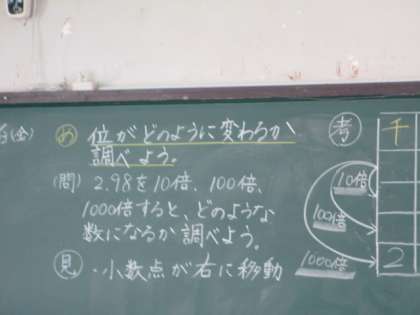 (金)
め 位がどのように変わるか
調べよう。
(問) 2.98を10倍、100倍、
1000倍すると、どのような
数になるか調べよう。
見 ・小数点が右に移動
考
千
10倍
100倍
1000倍
2